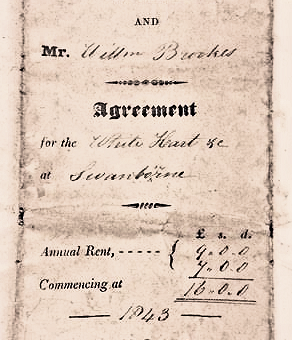 AND
Mr. Willm Brookes
Agreement
for the White Hart &c
at Swanborne
£ s. d.
Annual Rent, - - - - - { 9 . 0 . 0
7 . 0 . 0
Commencing at 16 . 0 . 0
— 1843 —